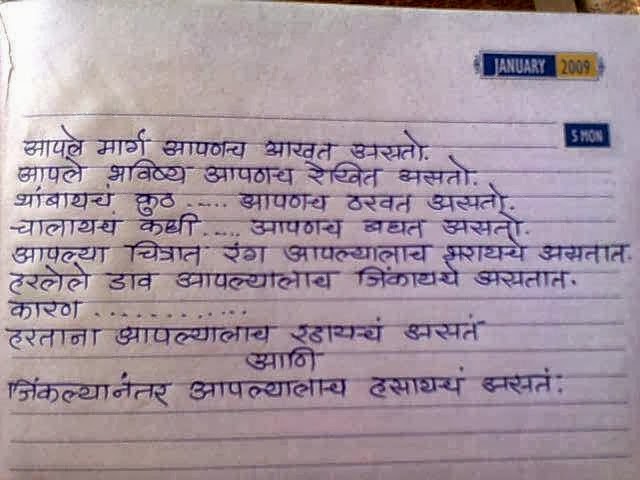 JANUARY 2009
5 MON
आपले मार्ग आपणच आखत असतो.
आपले भविष्य आपणच रेखित असतो.
थांबायचं कुठ ..... आपणच ठरवत असतो.
चालायचं कधी .... आपणच बघत असतो.
आपल्या चित्रात रंग आपल्यालाच भरायचे असतात.
हरलेले डाव आपल्यालाच जिंकायचे असतात.
कारण ............
हरताना आपल्यालाच रडायचं असतं
आणि
जिंकल्यानंतर आपल्यालाच हसायचं असतं.